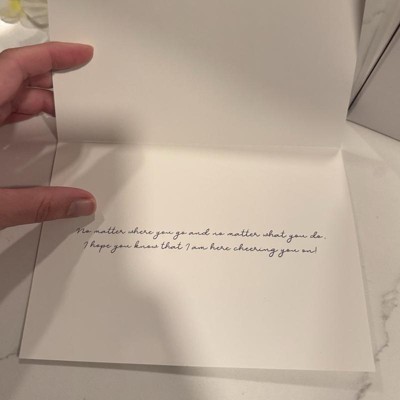 No matter where you go and no matter what you do,
I hope you know that I am here cheering you on!